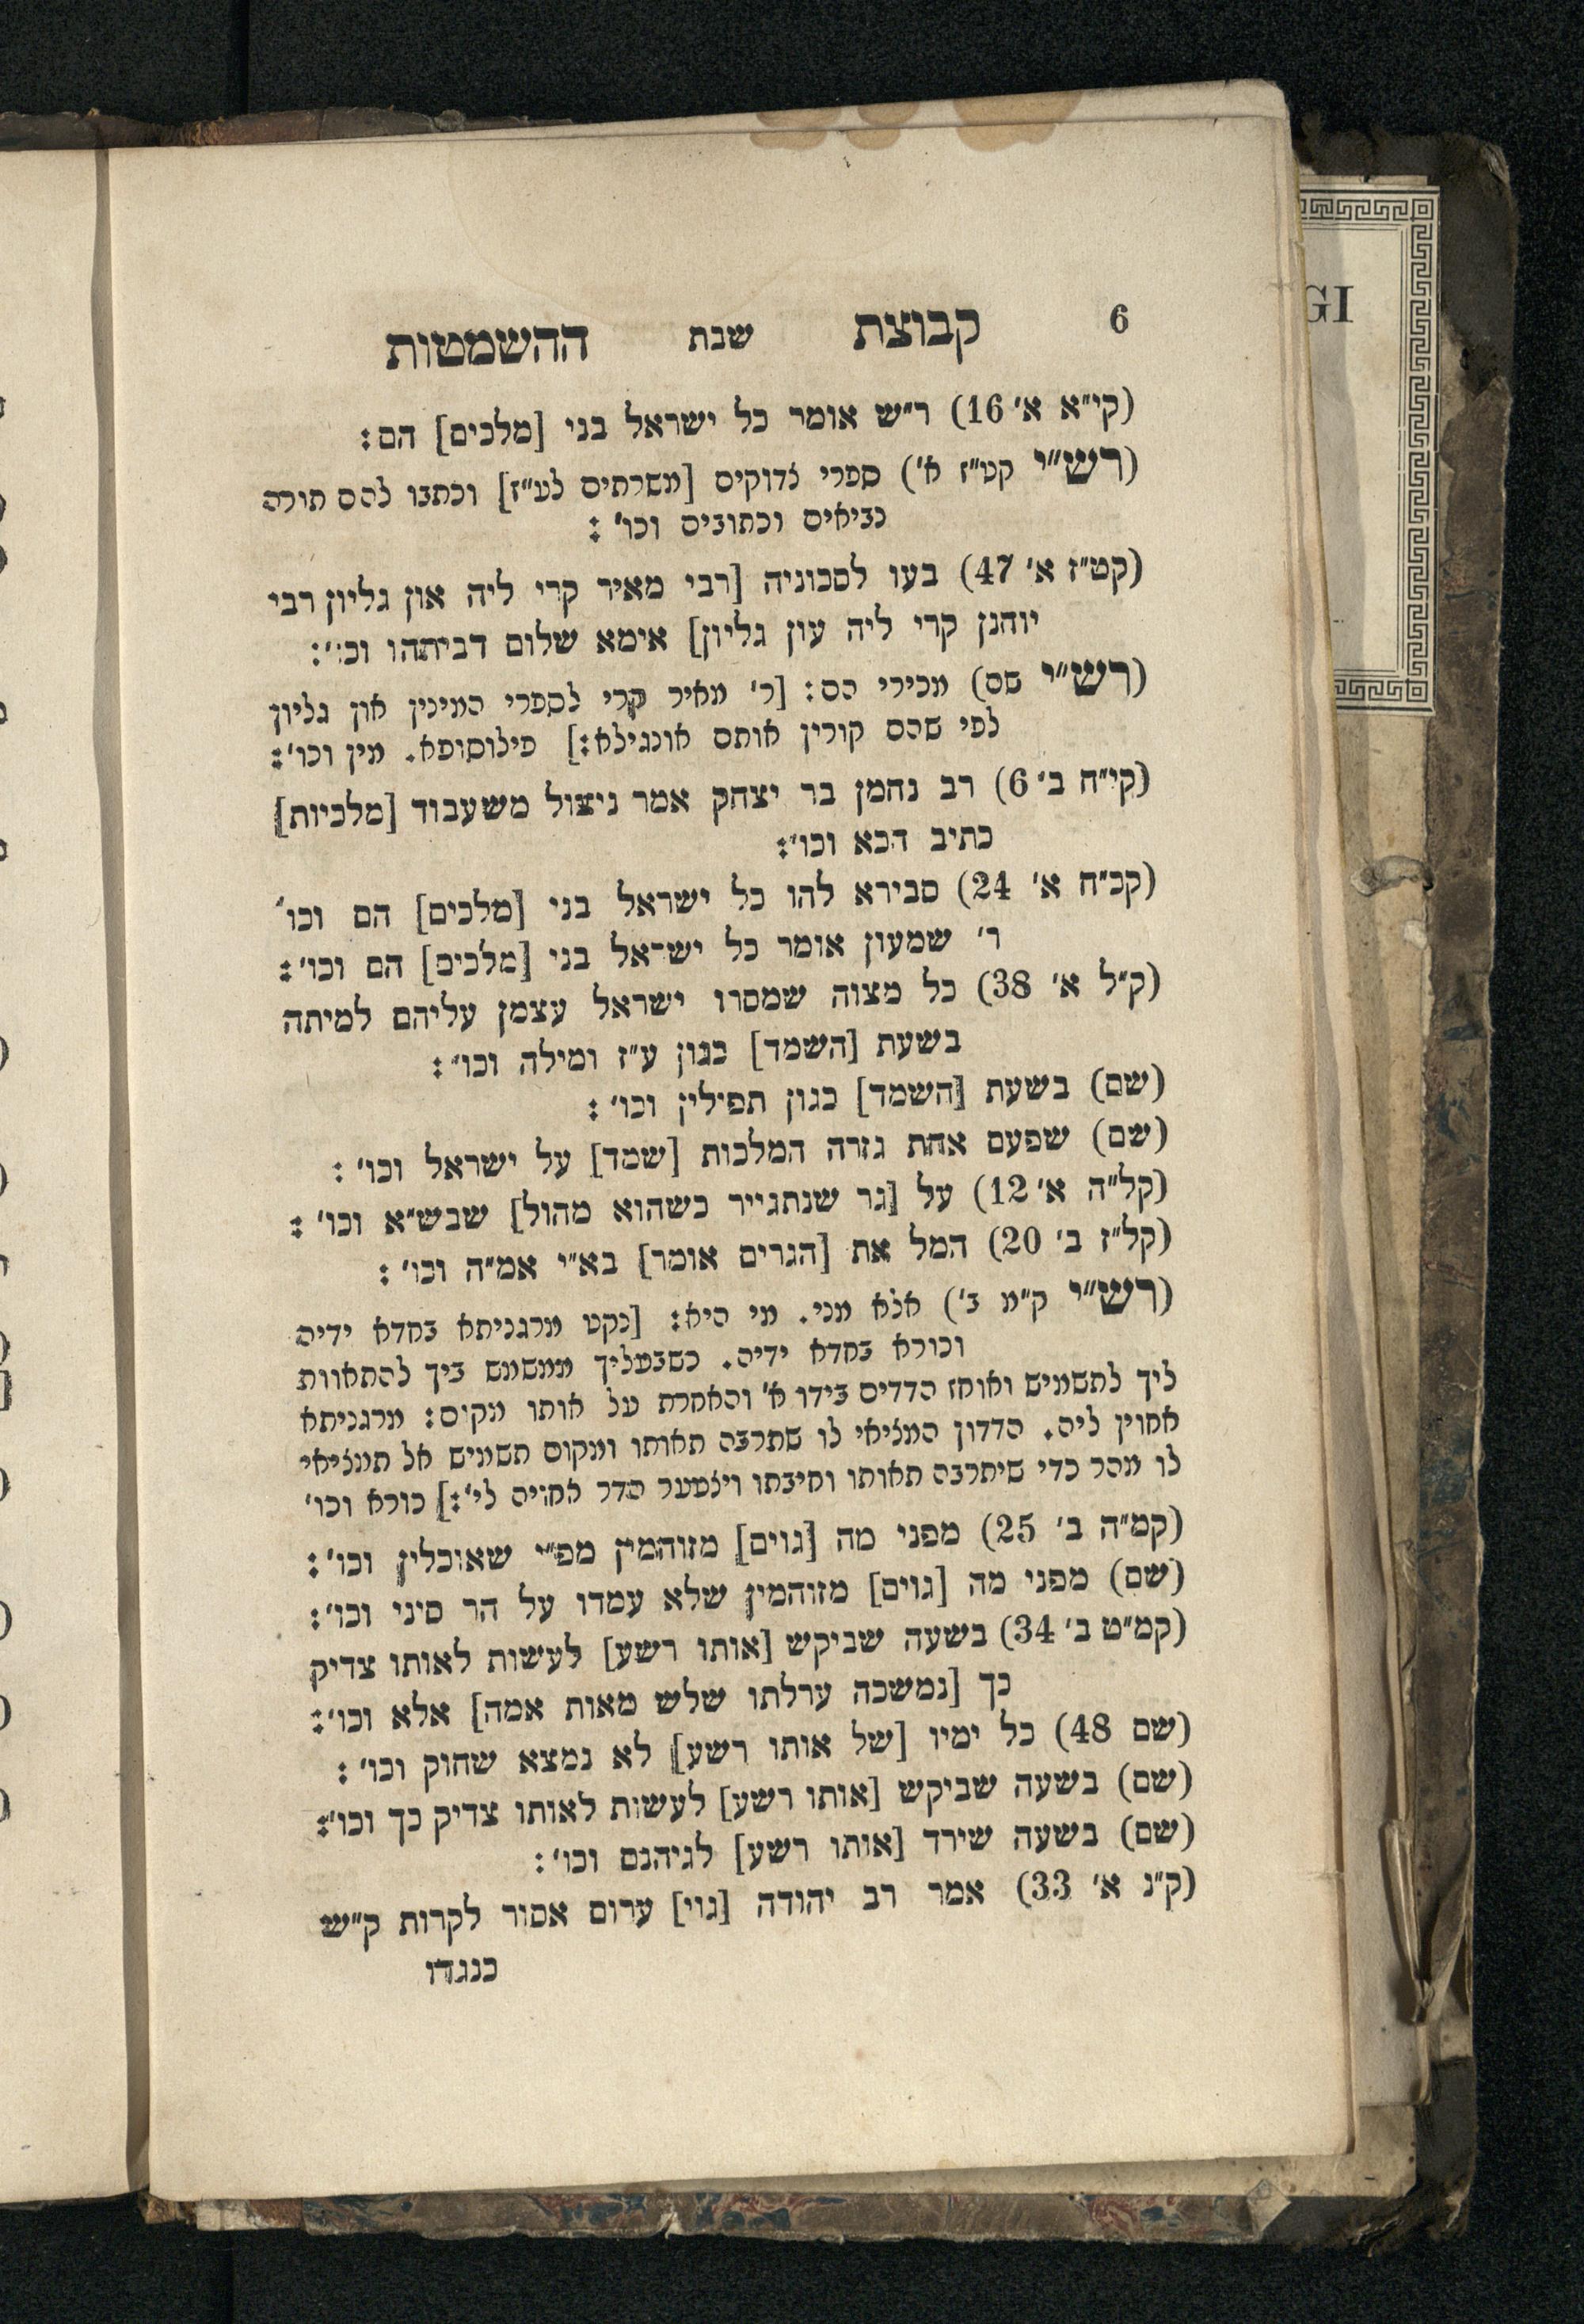 6 קבוצת שבת ההשמטות
(קי״א א׳ 16) ר״ש אומר כל ישראל בני [מלכים] הם:
(רש״י קט״ז א׳) ספרי צדוקים [משרתים לע״ז] וכתבו להם תורה
נביאים וכתובים וכו׳ :
(קט״ז א׳ 47) בעו לסכוניה [רבי מאיר קרי ליה און גליון רבי
יוחנן קרי ליה עון גליון] אימא שלום דביתהו וכו׳:
(רש״י שם) מכירי הם: [ר׳ מאיר קרי לספרי המינין און גליון
לפי שהם קורין אותם אונגילא:] פילוסופא. מין וכו׳:
(קי״ח ב׳ 6) רב נחמן בר יצחק אמר ניצול משעבוד [מלכיות]
כתיב הכא וכו׳:
(קכ״ח א׳ 24) סבירא להו כל ישראל בני [מלכים] הם וכו׳
ר׳ שמעון אומר כל ישראל בני [מלכים] הם וכו׳:
(ק״ל א׳ 38) כל מצוה שמסרו ישראל עצמן עליהם למיתה
בשעת [השמד] כגון ע״ז ומילה וכו׳:
(שם) בשעת [השמד] כגון תפילין וכו׳ :
(שם) שפעם אחת גזרה המלכות [שמד] על ישראל וכו׳ :
(קל״ה א׳ 12) על [גר שנתגייר כשהוא מהול] שבש״א וכו׳ :
(קל״ז ב׳ 20) המל את [הגרים אומר] בא״י אמ״ה וכו׳ :
(רש״י ק״מ ב׳) אלא מכי. מי היא: [נקט מרגניתא בחדא ידיה
וכורא בחדא ידיה. כשבעליך ממשמש ביך להתאוות
ליך לתשמיש ואוחז הדדים בידו א׳ והאחרת על אותו מקום: מרגניתא
אחוין ליה. הדדון המציאי לו שתרבה תאותו ומקום תשמיש אל תמציאי
לו מהר כדי שיתרבה תאותו וחיבתו ויצטער הדר אחויה לי׳:] כורא וכו׳
(קמ״ה ב׳ 25) מפני מה [גוים] מזוהמין מפ״י שאוכלין וכו׳:
(שם) מפני מה [גוים] מזוהמין שלא עמדו על הר סיני וכו׳:
(קמ״ט ב׳ 34) בשעה שביקש [אותו רשע] לעשות לאותו צדיק
כך [נמשכה ערלתו שלש מאות אמה] אלא וכו׳:
(שם 48) כל ימיו [של אותו רשע] לא נמצא שחוק וכו׳ :
(שם) בשעה שביקש [אותו רשע] לעשות לאותו צדיק כך וכו׳:
(שם) בשעה שירד [אותו רשע] לגיהנם וכו׳ :
(ק״נ א׳ 33) אמר רב יהודה [גוי] ערום אסור לקרות ק״ש
כנגדו
GI